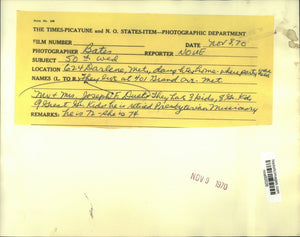 THE TIMES-PICAYUNE and N. O. STATES-ITEM—PHOTOGRAPHIC DEPARTMENT
FILM NUMBER DATE NOV 8 70
PHOTOGRAPHER Bates REPORTER NONE
SUBJECT 50th wed
LOCATION 624 Darlene, Met, daughter's home where party
NAMES (L. TO R.) They live at 401 Grand Met
Mr & Mrs. Joseph F. They have 3 Kids, 8 Gr. Kids
9 Great Gr. Kids he is retired Presbyterian Missionary
REMARKS: he is 72 she is 74
NOV 9 1970